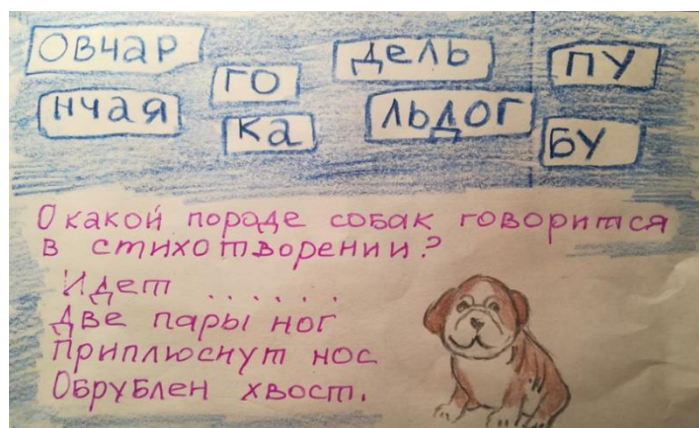 ОВЧАР
ГО
ДЕЛЬ
ПУ
НЧАЯ
КА
ЛЬДОГ
БУ
О какой породе собак говорится
в стихотворении?
Идет ......
Две пары ног
Приплюснут нос
Обрублен хвост.